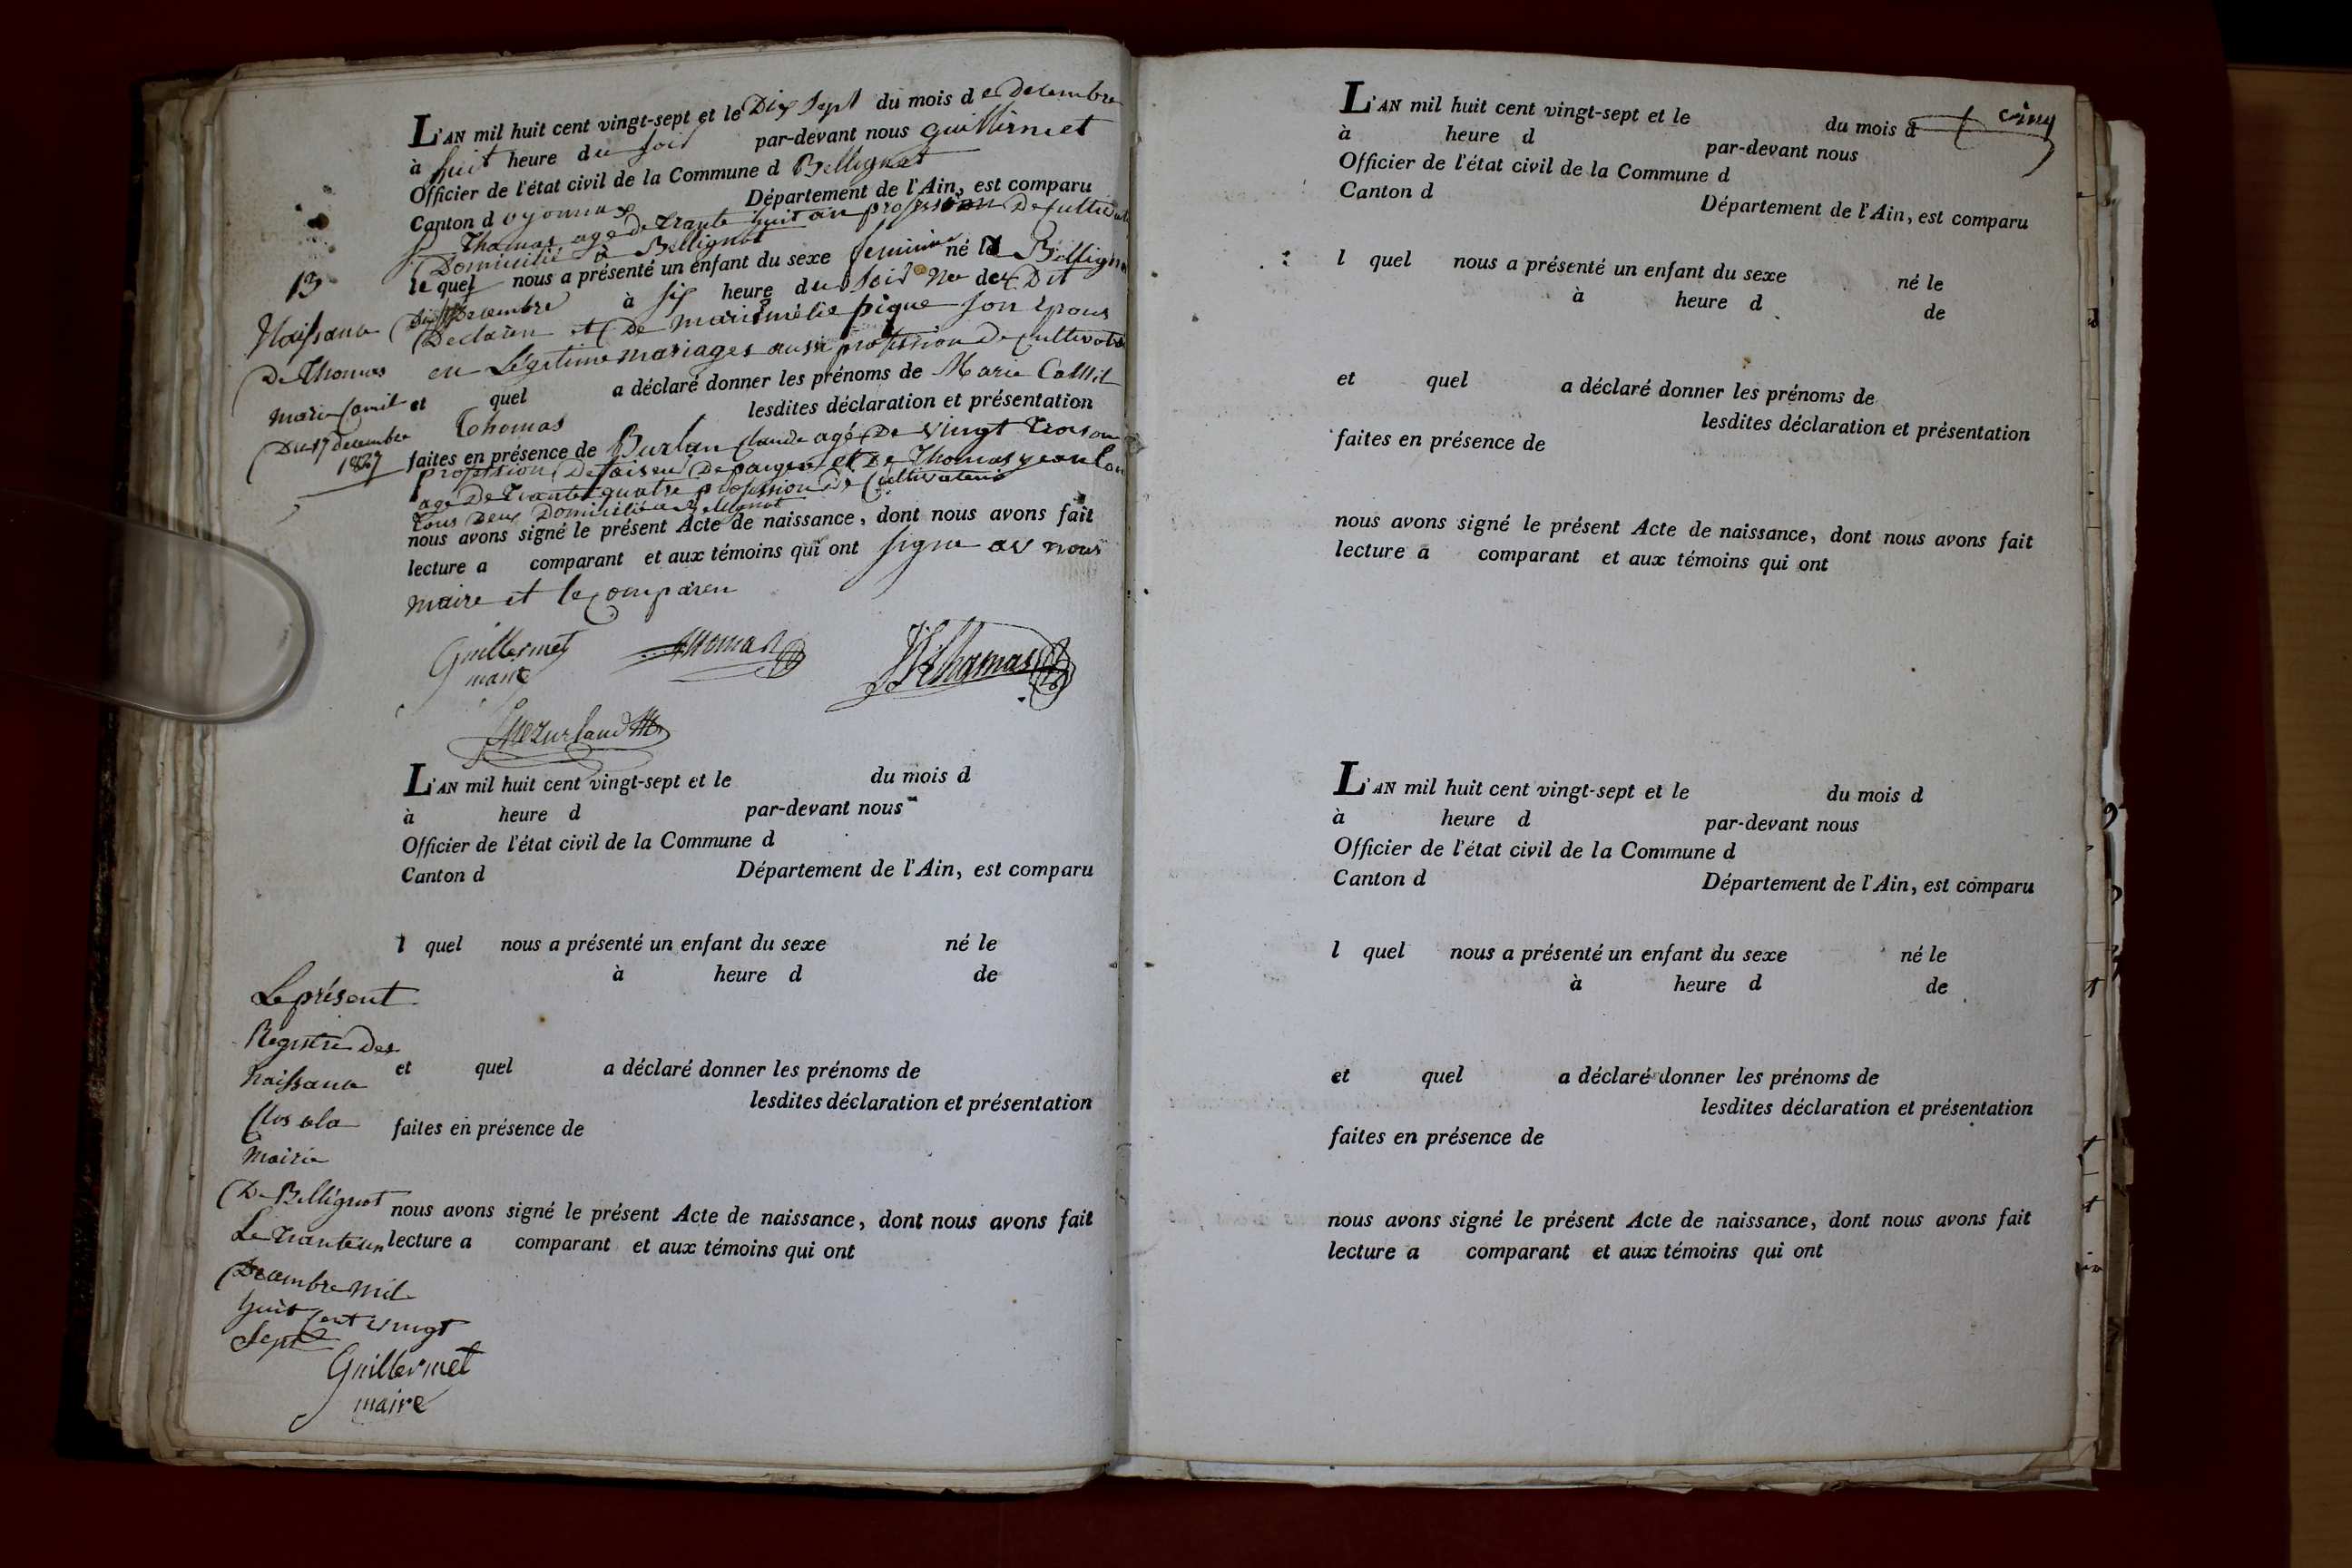 L'AN mil huit cent vingt-sept et le Dix Sept du mois de decembre
à huit heure du soir par-devant nous guillermet
Officier de l'état civil de la Commune d Bellignat
Canton d oyonnax Département de l'Ain, est comparu
Thomas age de trante huit an profession De cultivat
Domicilié a Bellignat
le quel nous a présenté un enfant du sexe feminin né le a Bellign
Dix Sept Decembre à six heure du soir ne de Dit
Declaren et De marie mélie pique son Epous
en Légetime mariages aussi profession De cultivatr
et quel a déclaré donner les prénoms de Marie Camil
Thomas lesdites déclaration et présentation
faites en présence de Burlan Claude agé De vingt trois an
profession De faiseu De paigne et De Thomas
age De trante quatre profession De Cultivateur
tous Deux Domicilié a Bellignat
nous avons signé le présent Acte de naissance, dont nous avons fait
lecture a comparant et aux témoins qui ont signe av nous
maire et le comparen
Guillermet
maire
Thomas
Thomas
13
Naissance
De Thomas
marie Camil
Du 17 decembre
1827
L'AN mil huit cent vingt-sept et le du mois d
à heure d par-devant nous
Officier de l'état civil de la Commune d
Canton d Département de l'Ain, est comparu
l quel nous a présenté un enfant du sexe né le
à heure d de
et quel a déclaré donner les prénoms de
lesdites déclaration et présentation
faites en présence de
nous avons signé le présent Acte de naissance, dont nous avons fait
lecture a comparant et aux témoins qui ont
Le présent
Registre Des
Naissance
Clos a la
Mairie
De Bellignat
Le trante un
Decembre mil
huit Cent vingt
Sept
Guillermet
maire
cinq
L'AN mil huit cent vingt-sept et le du mois d
à heure d par-devant nous
Officier de l'état civil de la Commune d
Canton d Département de l'Ain, est comparu
l quel nous a présenté un enfant du sexe né le
à heure d de
et quel a déclaré donner les prénoms de
lesdites déclaration et présentation
faites en présence de
nous avons signé le présent Acte de naissance, dont nous avons fait
lecture a comparant et aux témoins qui ont
L'AN mil huit cent vingt-sept et le du mois d
à heure d par-devant nous
Officier de l'état civil de la Commune d
Canton d Département de l'Ain, est comparu
l quel nous a présenté un enfant du sexe né le
à heure d de
et quel a déclaré donner les prénoms de
lesdites déclaration et présentation
faites en présence de
nous avons signé le présent Acte de naissance, dont nous avons fait
lecture a comparant et aux témoins qui ont